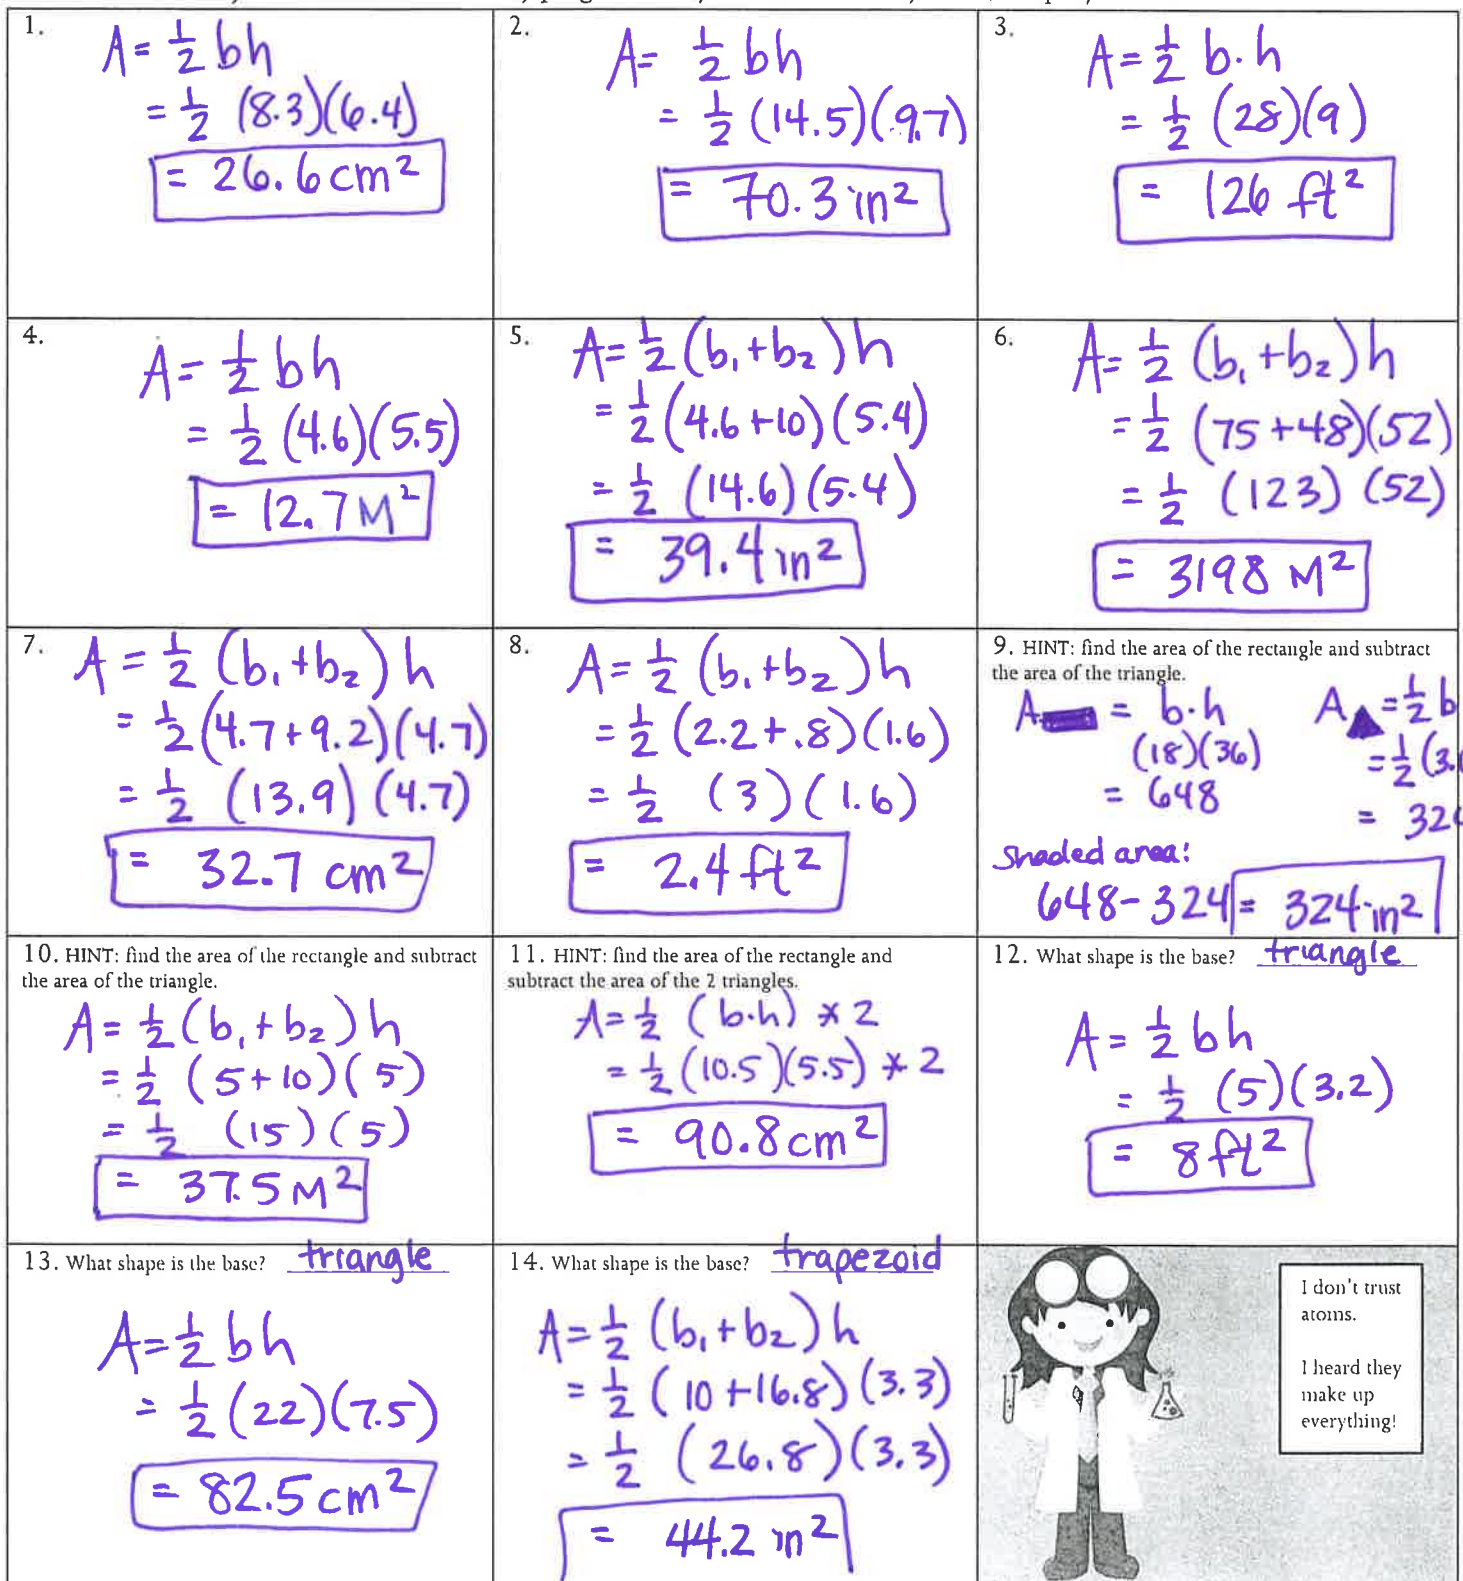 1.
A = 1/2 bh
= 1/2 (8.3)(6.4)
= 26.6 cm²
2.
A = 1/2 bh
= 1/2 (14.5)(9.7)
= 70.3 in²
3.
A = 1/2 b·h
= 1/2 (28)(9)
= 126 ft²
4.
A = 1/2 bh
= 1/2 (4.6)(5.5)
= 12.7 M²
5.
A = 1/2 (b₁+b₂)h
= 1/2 (4.6+10)(5.4)
= 1/2 (14.6)(5.4)
= 39.4 in²
6.
A = 1/2 (b₁+b₂)h
= 1/2 (75+48)(52)
= 1/2 (123)(52)
= 3198 M²
7.
A = 1/2 (b₁+b₂)h
= 1/2 (4.7+9.2)(4.7)
= 1/2 (13.9)(4.7)
= 32.7 cm²
8.
A = 1/2 (b₁+b₂)h
= 1/2 (2.2+.8)(1.6)
= 1/2 (3)(1.6)
= 2.4 ft²
9. HINT: find the area of the rectangle and subtract
the area of the triangle.
A = b·h
(18)(36)
= 648
A = 1/2 b
= 1/2 (3.
= 32
Shaded area:
648 - 324 = 324 in²
10. HINT: find the area of the rectangle and subtract
the area of the triangle.
A = 1/2 (b₁+b₂)h
= 1/2 (5+10)(5)
= 1/2 (15)(5)
= 37.5 M²
11. HINT: find the area of the rectangle and
subtract the area of the 2 triangles.
A = 1/2 (b·h) * 2
= 1/2 (10.5)(5.5) * 2
= 90.8 cm²
12. What shape is the base? triangle
A = 1/2 bh
= 1/2 (5)(3.2)
= 8 ft²
13. What shape is the base? triangle
A = 1/2 bh
= 1/2 (22)(7.5)
= 82.5 cm²
14. What shape is the base? trapezoid
A = 1/2 (b₁+b₂)h
= 1/2 (10+16.8)(3.3)
= 1/2 (26.8)(3.3)
= 44.2 in²
I don't trust
atoms.
I heard they
make up
everything!